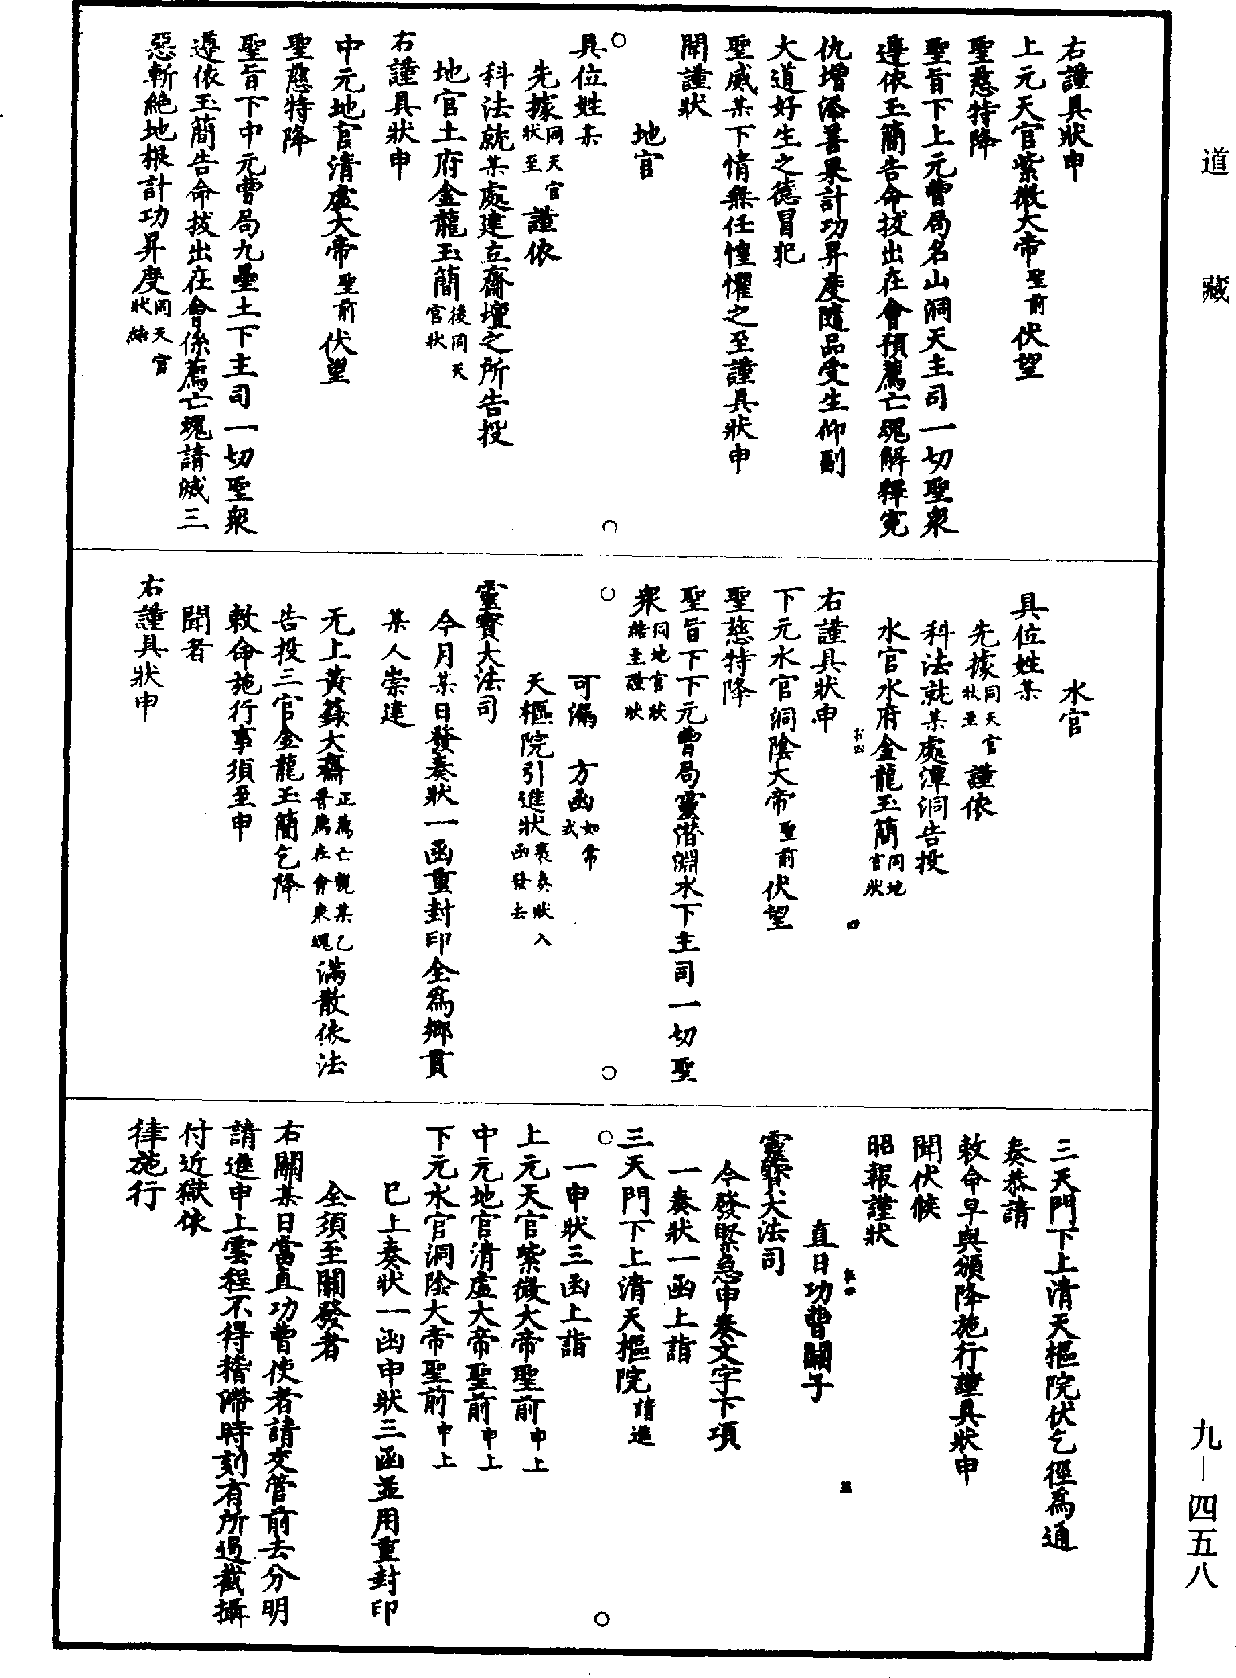 道藏
右謹具狀申
上元天官紫微大帝聖前伏望
聖慈特降
聖旨下上元曹局名山洞天主司一切聖衆
遵依玉簡告命拔出在會預薦亡魂解釋寃
仇增添善果計功昇度隨品受生仰副
大道好生之德冒犯
聖威某下情無任惶懼之至謹具狀申
聞謹狀
地官
具位姓某
先據同天官狀至謹依
科法就某處建立齋壇之所告投
地官土府金龍玉簡後同天官狀
右謹具狀申
中元地官清虛大帝聖前伏望
聖慈特降
聖旨下中元曹局九壘土下主司一切聖衆
遵依玉簡告命拔出在會係薦亡魂請滅三
惡斬絶地根計功昇度同天官狀繳
水官
具位姓某
先據同天官狀至謹依
科法就某處潭洞告投
水官水府金龍玉簡同地官狀
右謹具狀申
下元水官洞陰大帝聖前伏望
聖慈特降
聖旨下下元曹局靈潛淵水下主司一切聖
衆同地官狀繳至謹狀
可漏 方函如常式
天樞院引進狀裹奏狀入函發去
靈寶大法司
今月某日發奏狀一函重封印全爲鄉貫
某人崇建
无上黃籙大齋正薦亡親某乙普薦在會衆魂滿散依法
告投三官金龍玉簡乞降
敕命施行事須至申
聞者
右謹具狀申
三天門下上清天樞院伏乞徑爲通
奏恭請
敕命早與頒降施行謹具狀申
聞伏候
昭報謹狀
直日功曹關子
靈寶大法司
今發緊急申奏文字下項
一奏狀一函上詣
三天門下上清天樞院請進
一申狀三函上詣
上元天官紫微大帝聖前申上
中元地官清虛大帝聖前申上
下元水官洞陰大帝聖前申上
已上奏狀一函申狀三函並用重封印
全須至關發者
右關某日當直功曹使者請交管前去分明
請進申上雲程不得稽滯時刻有所過截攝
付近獄依
律施行
九－四五八